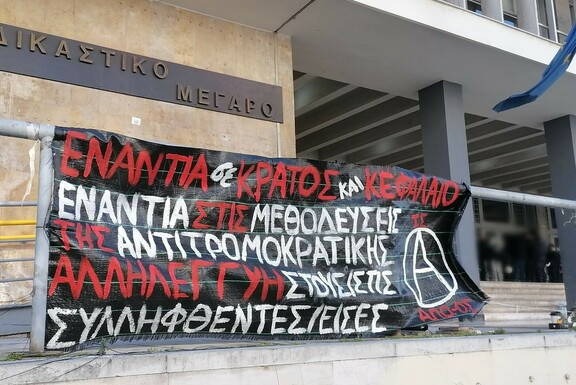 ΔΙΚΑΣΤΙΚΟ
ΜΕΓΑΡΟ
ΕΝΑΝΤΙΑ σε ΚΡΑΤΟΣ και ΚΕΦΑΛΑΙΟ
ΕΝΑΝΤΙΑ ΣΤΙΣ ΜΕΘΟΔΕΥΣΕΙΣ
ΤΗΣ ΑΝΤΙΤΡΟΜΟΚΡΑΤΙΚΗΣ
ΑΛΛΗΛΕΓΓΥΗ ΣΤΟΥΣ/ΣΤΙΣ
ΣΥΛΛΗΦΘΕΝΤΕΣ/ΕΙΣΕΣ